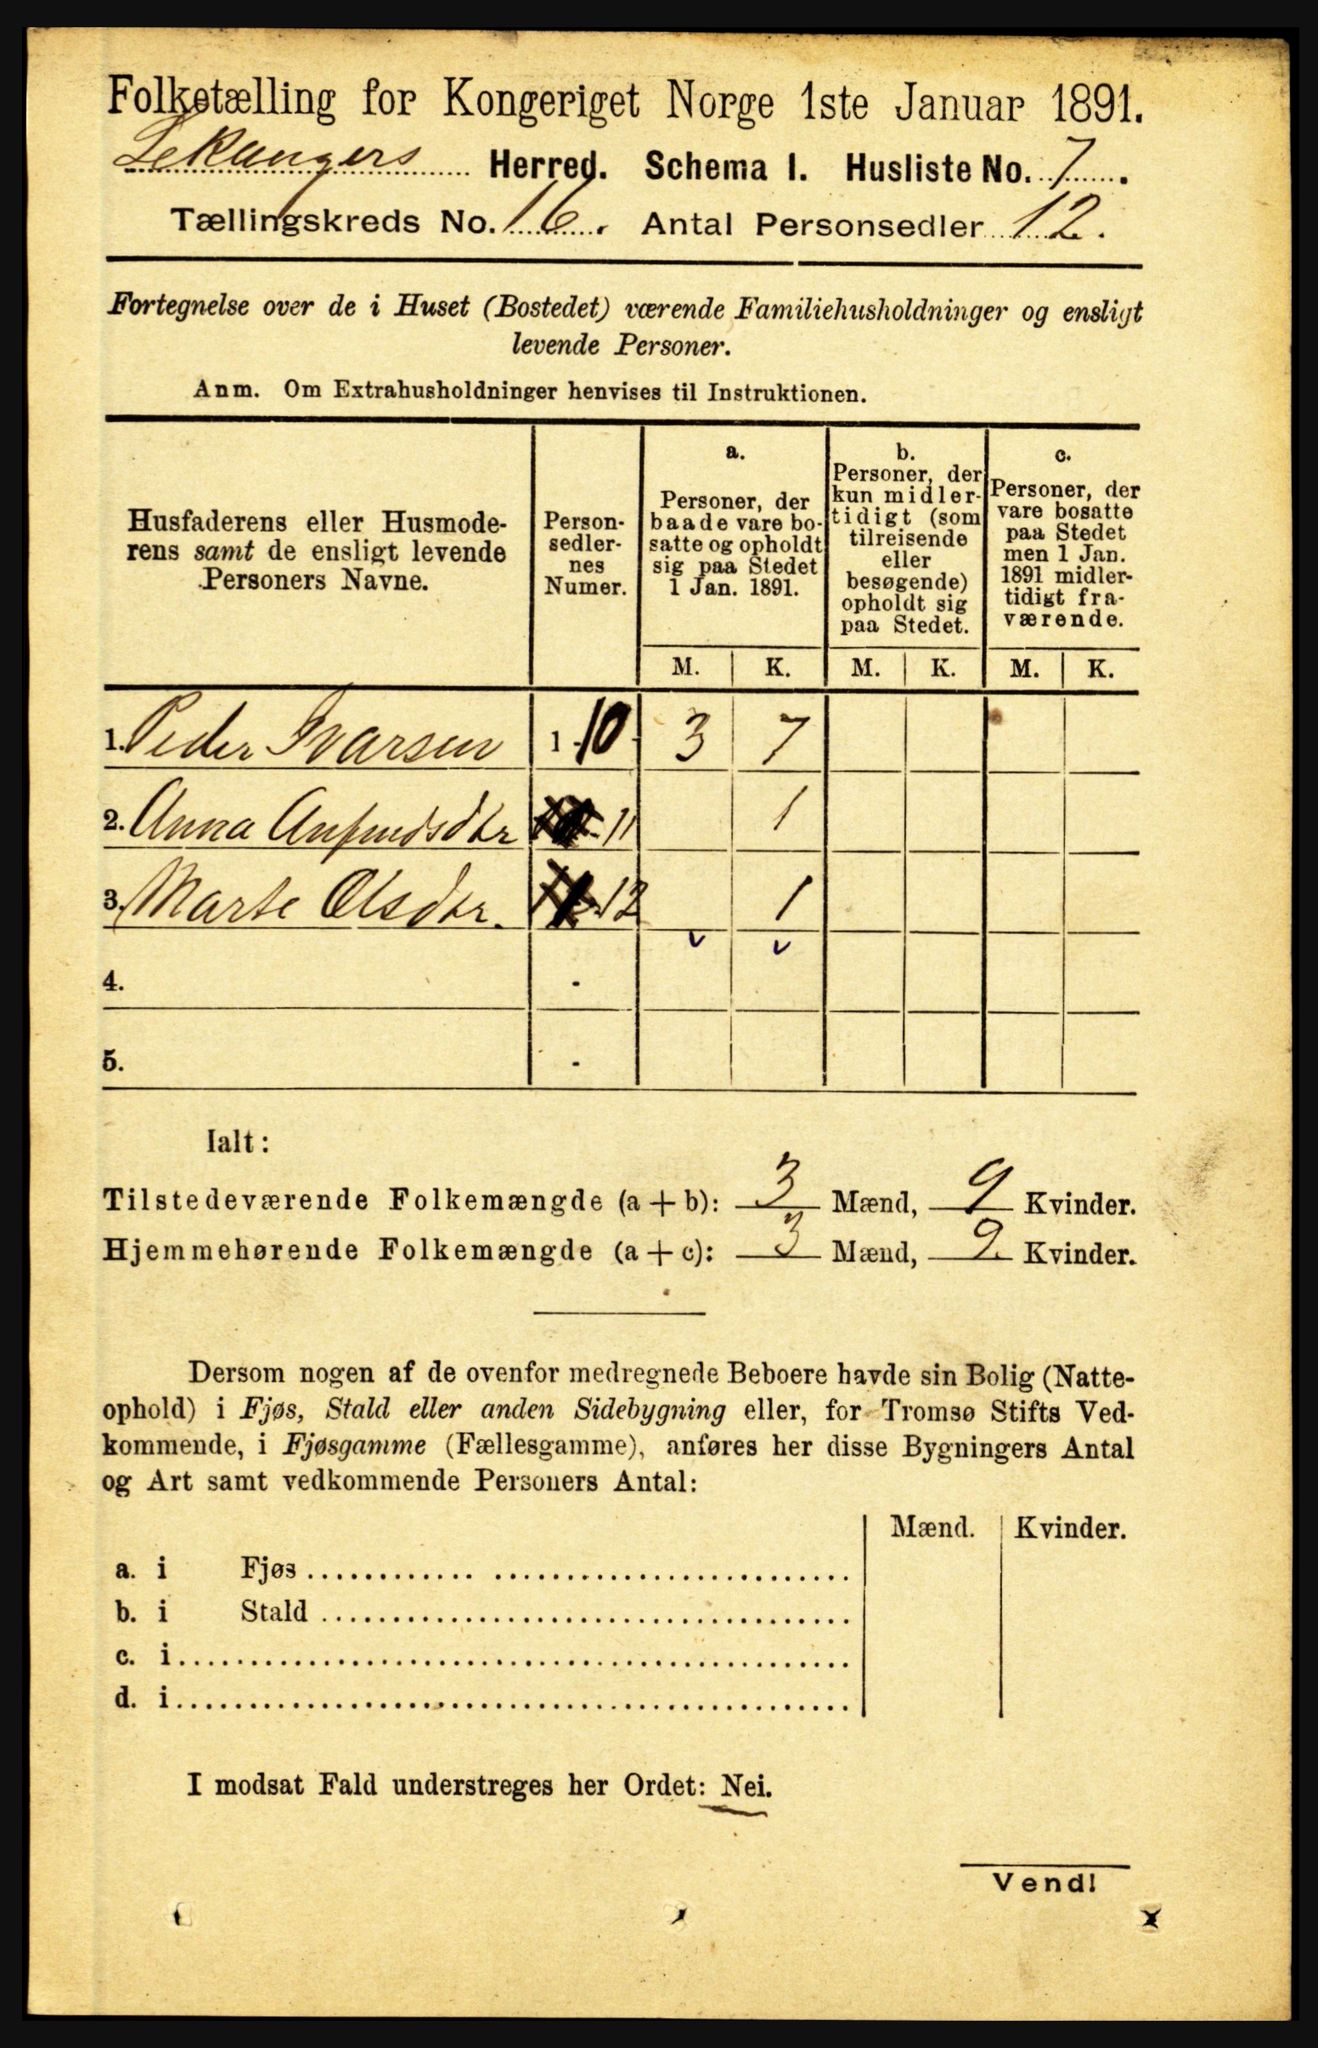 Folketælling for Kongeriget Norge 1ste Januar 1891.
Lekangers Herred. Schema I. Husliste No. 7.
Tællingskreds No. 16. Antal Personsedler 12.
Fortegnelse over de i Huset (Bostedet) værende Familiehusholdninger og ensligt
levende Personer.
Anm. Om Extrahusholdninger henvises til Instruktionen.
Husfaderens eller Husmode-
rens samt de ensligt levende
Personers Navne.
Person-
sedler-
nes
Numer.
a.
Personer, der
baade vare bo-
satte og opholdt
sig paa Stedet
1 Jan. 1891.
b.
Personer, der
kun midler-
tidigt (som
tilreisende
eller
besøgende)
opholdt sig
paa Stedet.
c.
Personer, der
vare bosatte
paa Stedet
men 1 Jan.
1891 midler-
tidigt fra-
værende.
M. K. M. K. M. K.
1. Peder Ivarsen 1 - 10 3 7
2. Anna Anfindsdtr - 11 1
3. Marte Olsdtr. - 12 1
4. -
5. -
Ialt:
Tilstedeværende Folkemængde (a + b): 3 Mænd, 9 Kvinder.
Hjemmehørende Folkemængde (a + c): 3 Mænd, 9 Kvinder.
Dersom nogen af de ovenfor medregnede Beboere havde sin Bolig (Natte-
ophold) i Fjøs, Stald eller anden Sidebygning eller, for Tromsø Stifts Ved-
kommende, i Fjøsgamme (Fællesgamme), anføres her disse Bygningers Antal
og Art samt vedkommende Personers Antal:
Mænd. Kvinder.
a. i Fjøs
b. i Stald
c. i
d. i
I modsat Fald understreges her Ordet: Nei.
Vend!